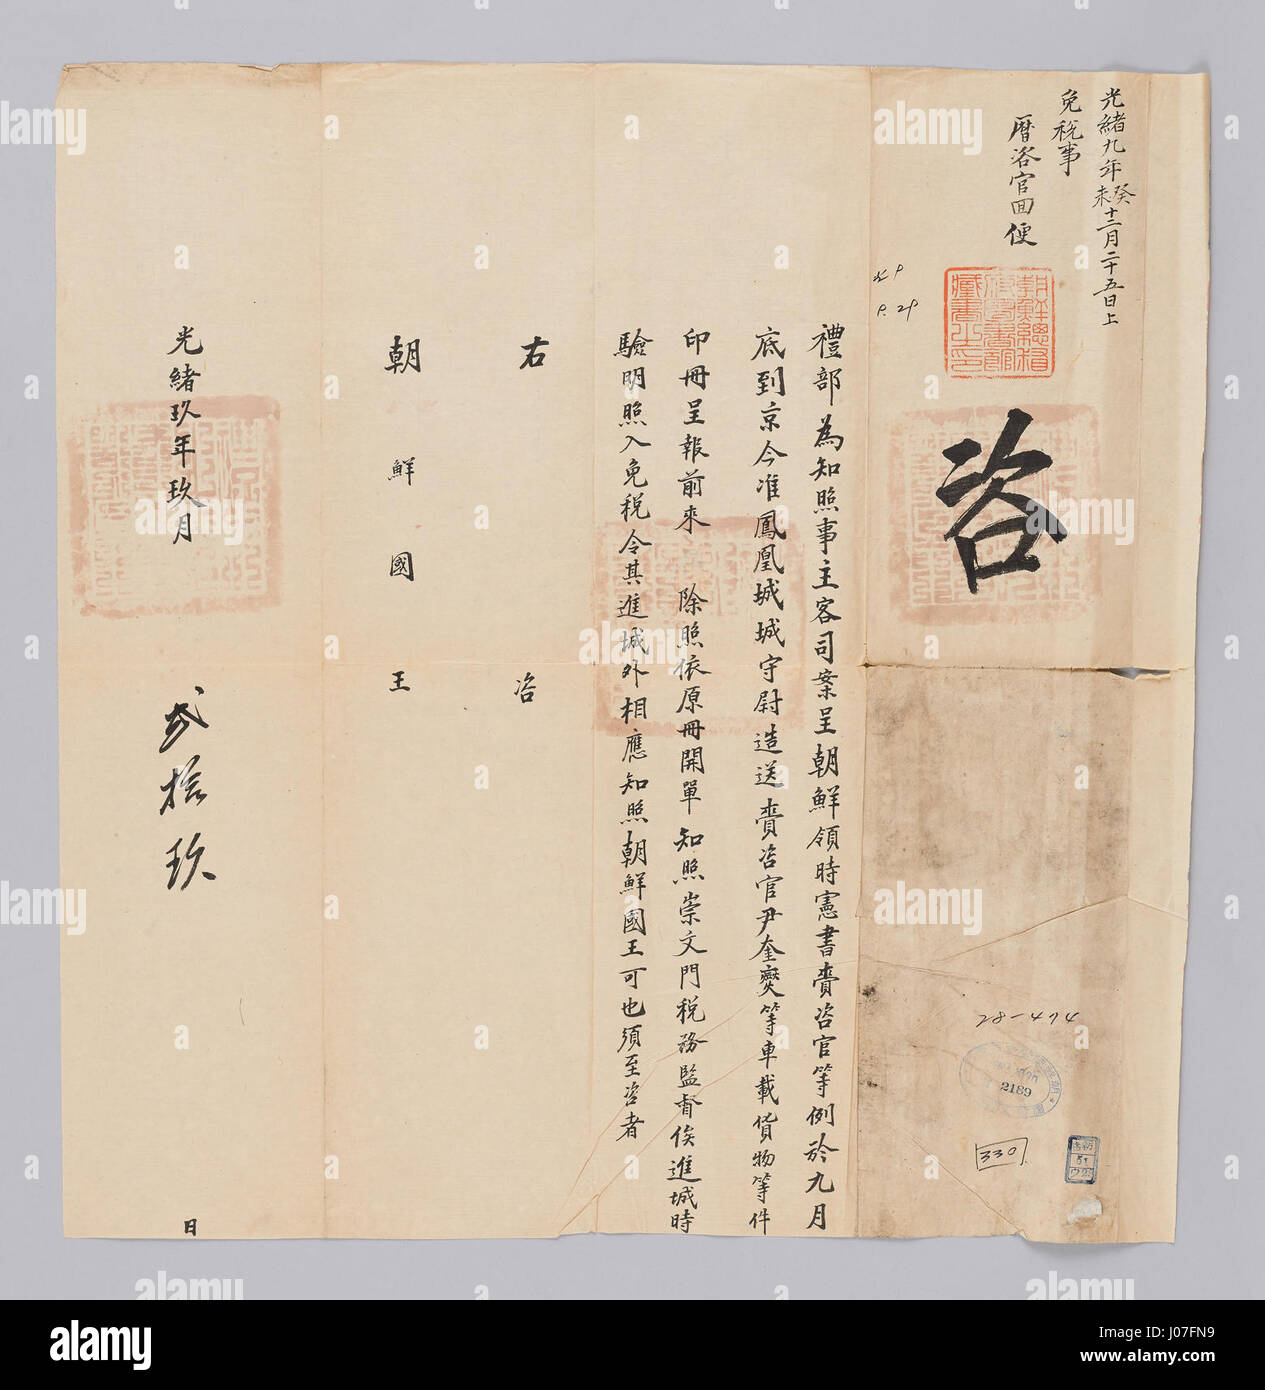 光緒九年癸未十二月二十五日上
免稅事
曆咨官回便
朝鮮總督
府圖書館
藏書之印
咨
禮部為知照事主客司案呈朝鮮領時憲書賫咨官等例於九月
底到京今准鳳凰城城守尉造送賫咨官尹奎爕等車載貨物等件
印冊呈報前來 除照依原冊開單知照崇文門稅務監督俟進城時
驗明照入免稅令其進城外相應知照朝鮮國王可也須至咨者
右 咨
朝鮮國王
光緒玖年玖月 貳拾玖 日
2189
330
alamy
Image ID: J07FN9
www.alamy.com